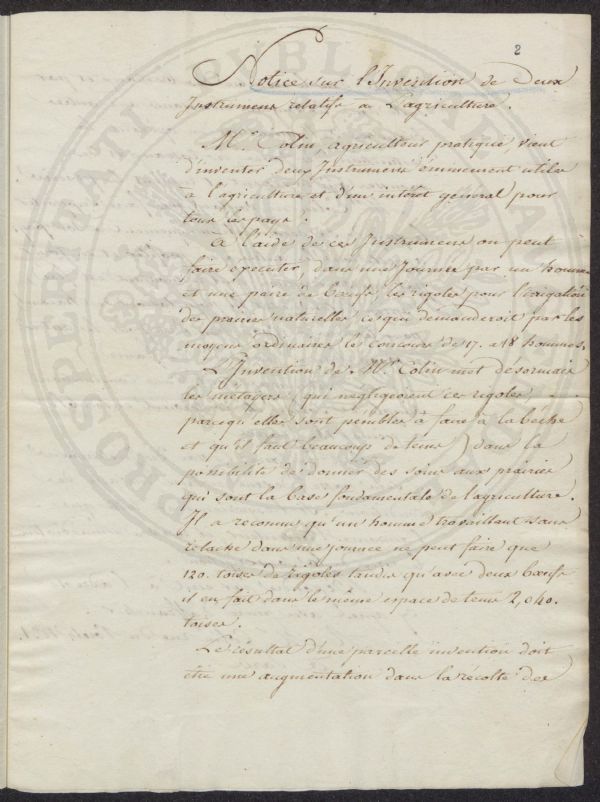 2
Notice sur l'Invention de Deux
Instrumens relatifs à L'agriculture.
Mr. Colin, agriculteur pratique, vient
d'inventer deux Instrumens éminement utiles
à l'agriculture et d'un intérêt général pour
tous les pays.
À l'aide de ces Instrumens on peut
faire executer, dans une Journée par un homme
et une paire de bœufs, les rigoles pour l'irrigation
des prairies naturelles ce qui demanderoit par les
moyens ordinaires le concours de 17. a 18 hommes.
L'Invention de Mr. Colin met désormais
les métayers (qui négligeoient ces rigoles,
parcequ'elles sont penibles à faire à la bêche
et qu'il faut beaucoup de tems) dans la
possibilité de donner des soins aux prairies
qui sont la base fondamentale de l'agriculture.
Il a reconnu qu'un homme travaillant sans
relache dans une journée ne peut faire que
120. toises de rigoles tandis qu'avec deux bœufs
il en fait dans le même espace de tems 2,040.
toises.
Le résultat d'une pareille invention doit
être une augmentation dans la récolte des
PROSPERITATI PUBLICAE AUG